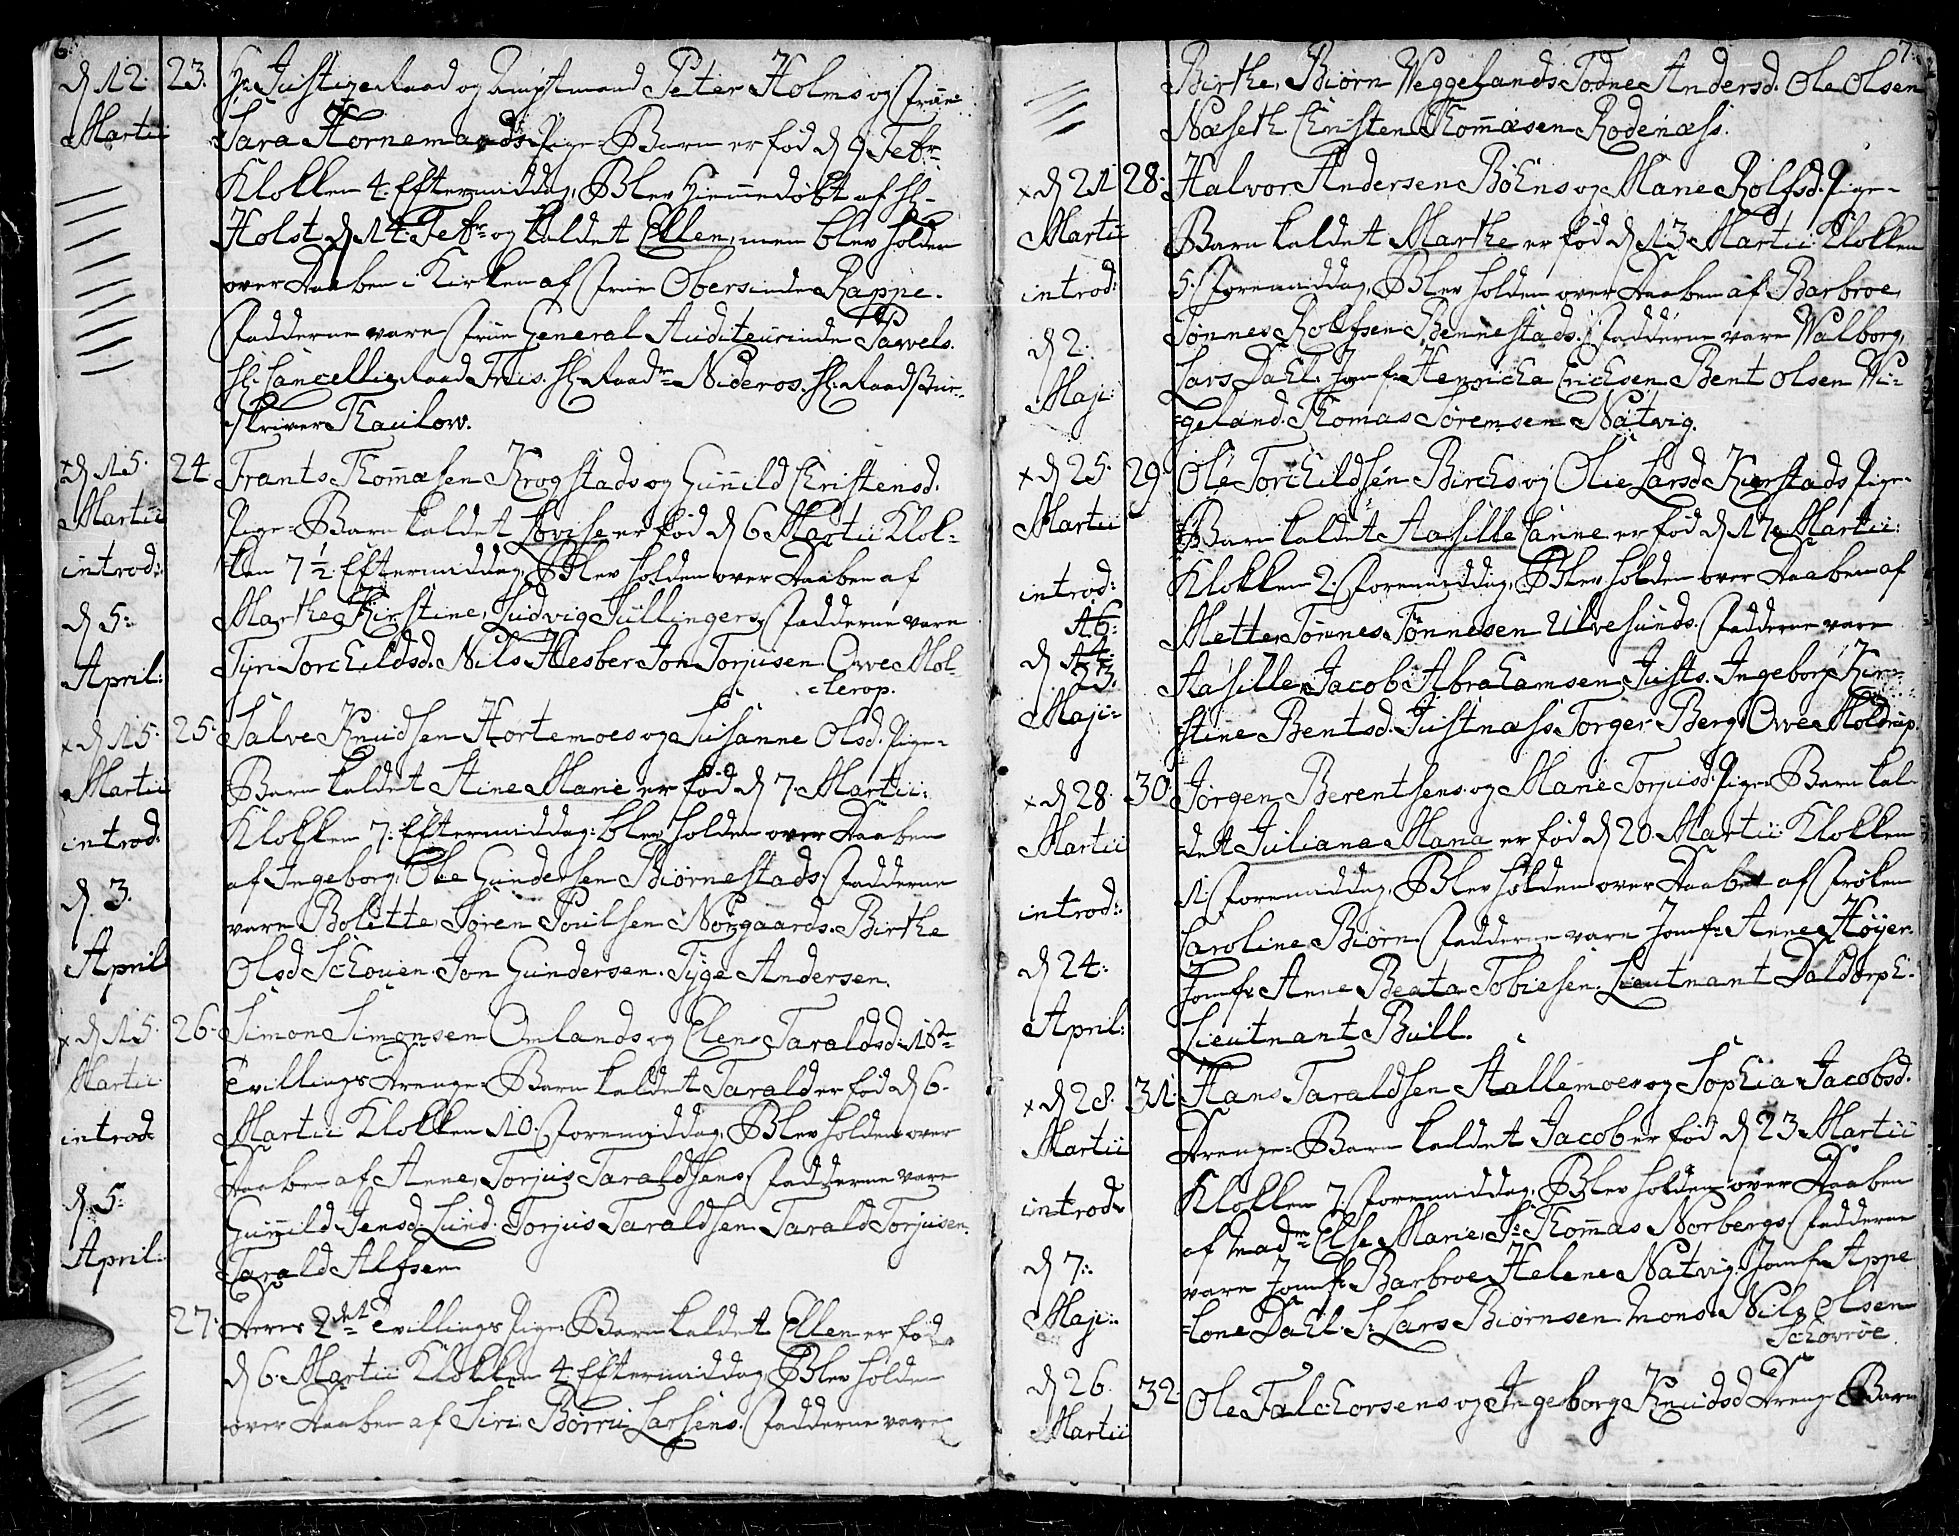 6.
d 12.
Martii
23. Hr. Justize Raad og Amptmand Peter Holms og Frue
Sara Hornemands Pige-Barn er fød d 9 Febr.
Klokken 4. Eftermiddag, Blev Hiemmedøbt af H.
Holst d 14. Febr. og kaldet Ellen, men blev holden
over Daaben i Kirken af Frue Obersinde Rappe.
Fadderne vare Frue General Auditeurinde Pawels.
H. Cancellie Raad Friis. H. Raadm. Nideros. H. Raadstue-
skriver Thaulow.
x d 15.
Martii
introd:
d 5:
April:
24. Frants Thomæsen Krogstads og Gunnild Christensd.
Pige-Barn kaldet Lovise er fød d 6 Martii Klok-
ken 7 1/2 Eftermiddag, Blev holden over Daaben af
Marthe Kirstine, Ludvig Süllingers, Fadderne vare
Tyri Torchildsd. Nils Hesber Jon Torjusen Owe Mol-
lerop.
x d 15.
Martii
introd:
d. 3.
April
25. Salve Knudsen Hortemoes og Susanne Olsd. Pige-
Barn kaldet Stine Marie er fød d 7 Martii:
Klokken 7. Eftermiddag: blev holden over Daaben
af Ingeborg, Ole Gundersen Biørnestads, Fadderne
vare Bolette, Søren Poulsen Nørgaards. Birthe
Olsd Schouen Jon Gundersen. Tyge Andersen.
x d 15.
Martii
introd:
d. 5:
April:
26. Simon Simonsen Omlands og Elen Taraldsd. 1ste
Tvillings Drenge-Barn kaldet Tarald er fød d 6.
Martii Klokken 10. Foremiddag, Blev holden over
Daaben af Anne, Torjus Taraldsens, Fadderne vare
Gunnild Jensd. Lund. Torjus Taraldsen Tarald Torjusen.
Tarald Alfsen
27. Deres 2det Tvillings Pige-Barn kaldet Ellen er fød
d 6. Martii Klokken 4. Eftermiddag, Blev holden
over Daaben af Siri Børru Larsens. Fadderne vare
7.
Birthe, Biørn Weggelands Todne Andersd. Ole Olsen
Næseth Christen Thomæsen Rodenæss.
x d 21
Martii
introd:
d 2.
Maji
28. Halvor Andersen Böens og Marie Rolfsd. Pige-
Barn kaldet Marthe er fød d 13 Martii Klokken
5. Foremiddag, Blev holden over Daaben af Barbroe,
Tønnes Rolfsen Bennestads. Fadderne vare Walborg,
Lars Dahl. Jomf. Henricha Erichsen Bent Olsen Wi-
geland. Thomas Sørensen Natvig.
x d 25.
Martii
introd:
16.
d
23.
Maji
29. Ole Torchildsen Birchs og Olie Larsd. Kierstads Pige-
Barn kaldet Aasille Canne er fød d 17 Martii:
Klokken 2. Foremiddag, Blev holden over Daaben af
Mette, Tønnes Tønnesen Ulvesunds. Fadderne vare
Aasille, Jacob Abrahamsen Justs. Ingeborg Kir-
stine Bentsd. Justnæss Torger Berg. Owe Moldrup.
x d 28.
Martii
introd:
d 24:
April:
30. Jörgen Berentsens og Marie Torjusd: Pige-Barn kal-
det Juliana Maria er fød d 20. Martii Klokken
1. Foremiddag, Blev holden over Daaben af Frøken
Caroline Biørn. Fadderne vare Jomf. Anne Høyer.
Jomf. Anne Beata Tobiesen. Lieutnant Daldorph.
Lieutnant Bull.
x d 28.
Martii
introd:
d 7:
Maji:
31. Hans Taraldsen Stallemoes og Sophia Jacobsd.
Drenge-Barn kaldet Jacob er fød d 23 Martii
Klokken 7. Foremiddag, Blev holden over Daaben
af Madme Else Marie, Sr. Thomas Norbergs. Fadderne
vare Jomf. Barbroe Helene Natvig. Jomf. Appe-
lone Dahl. Sr. Lars Biørnsen Mons. Nils Olsen
Schovrøe.
d 26.
Martii
32. Ole Falchorsens og Ingeborg Knudsd. Drenge-Barn